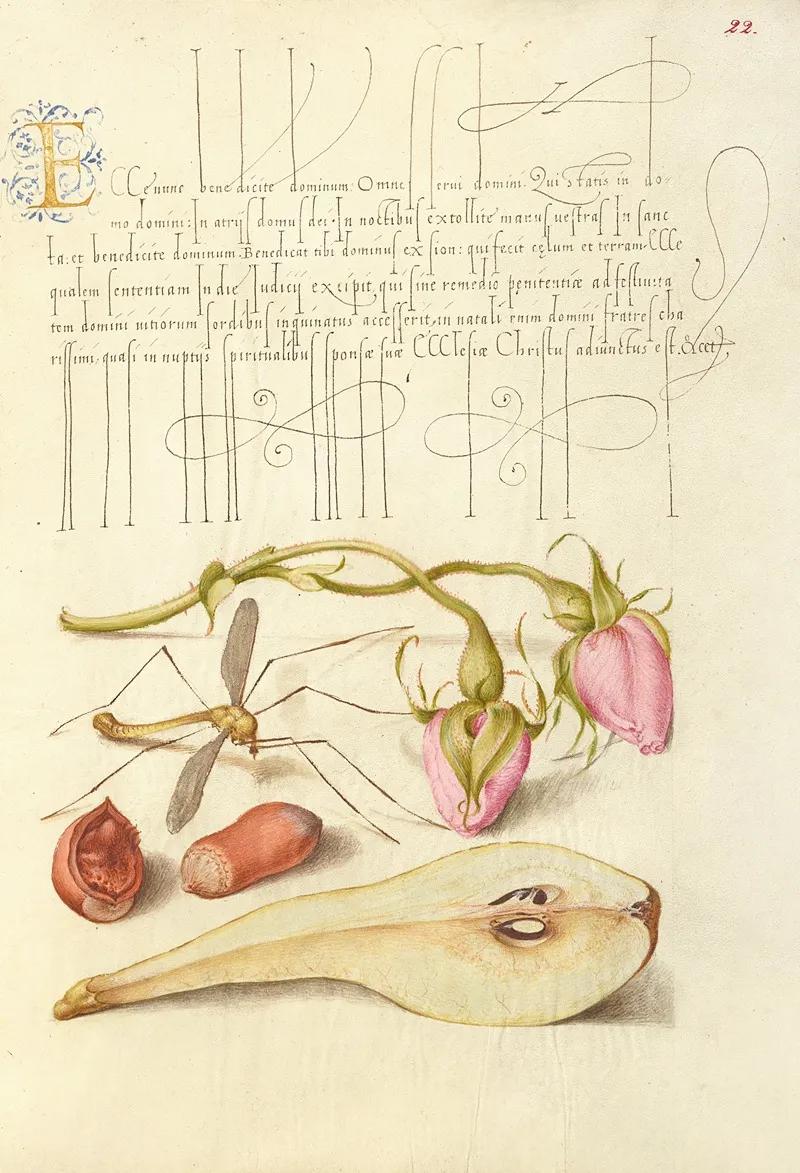 22.
ECCe nunc benedicite dominum: Omnes serui domini. Qui statis in do-
mo domini: In atrijs domus dei. In noctibus extollite manus uestras In sanc
ta: et benedicite dominum. Benedicat tibi dominus ex sion: qui fecit cęlum et terram. CCCe
qualem sententiam In die Iudicij excipit, qui sine remedio penitentiæ ad festiuita
tem domini uitiorum sordibus inquinatus accesserit, in natali enim domini fratres cha
rissimi, quasi in nuptijs spiritualibus sponsæ suæ CCClesiæ Christus adiunctus est. &cet,